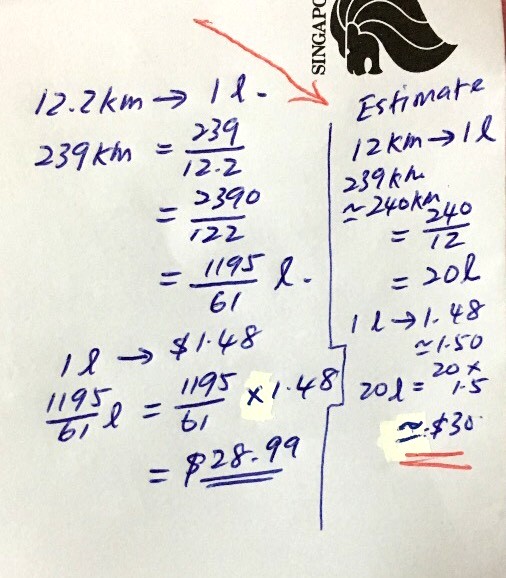 SINGAPO
12.2km → 1 l.
239km = 239/12.2
= 2390/122
= 1195/61 l.
1 l → $1.48
1195/61 l = 1195/61 × 1.48
= $28.99
Estimate
12km → 1 l
239km
≃ 240km
= 240/12
= 20 l
1 l → 1.48
≃ 1.50
20 l = 20 × 1.5
≃ $30.